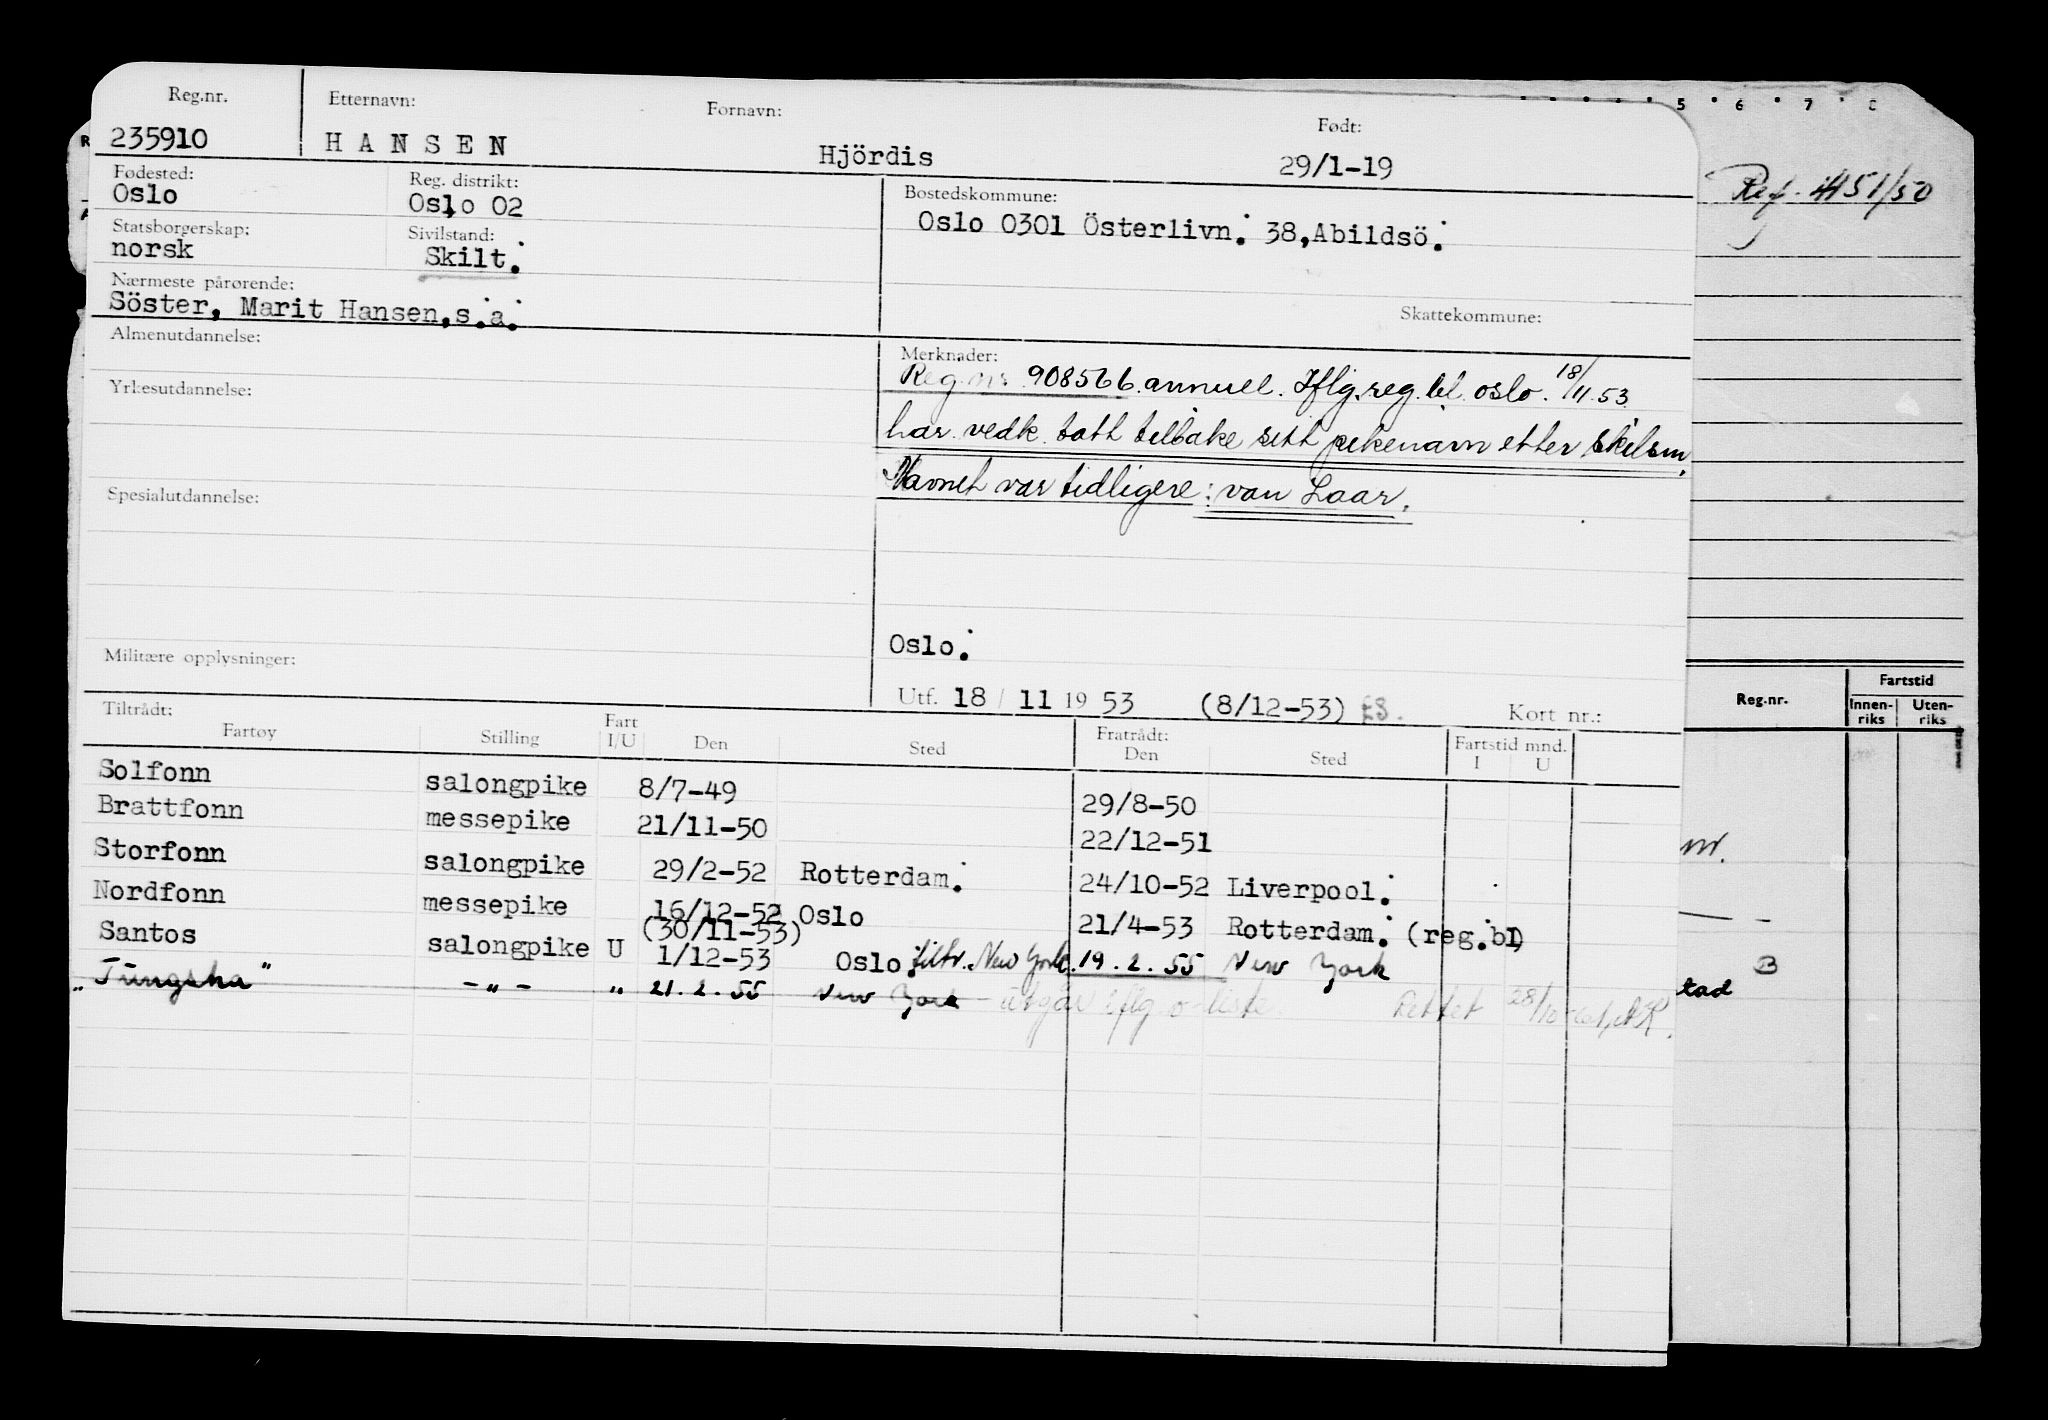 Reg.nr. Etternavn: Fornavn: Født:
235910 HANSEN Hjördis 29/1-19
Fødested: Reg. distrikt: Bostedskommune:
Oslo Oslo 02 Oslo 0301 Österlivn. 38,Abildsö.
Statsborgerskap: Sivilstand:
norsk Skilt.
Nærmeste pårørende:
Söster, Marit Hansen,s.a.
Skattekommune:
Almenutdannelse:
Yrkesutdannelse:
Spesialutdannelse:
Militære opplysninger:
Merknader:
Reg.nr. 908566 annuel. Iflg. reg. bl. oslo. 18/11.53.
har vedk. tatt tilbake sitt pikenavn etter skilsm,
Navnet var tidligere: van Laar.
Oslo.
Utf. 18 / 11 19 53 (8/12-53) Kort nr.:
Tiltrådt: Fratrådt:
Fartøy Stilling Fart I/U Den Sted Den Sted Fartstid mnd. I U
Solfonn salongpike 8/7-49 29/8-50
Brattfonn messepike 21/11-50 22/12-51
Storfonn salongpike 29/2-52 Rotterdam. 24/10-52 Liverpool.
Nordfonn messepike 16/12-52 Oslo 21/4-53 Rotterdam. (reg.bl)
(30/11-53)
Santos salongpike U 1/12-53 Oslo. tiltr. New York. 19.2.55 New York
"Tungsha" -"- " 21.2.55 New York - utgår iflg. o-liste. Rettet 28/10
5 6 7 C
Ref. 4151/50
Reg.nr. Fartstid
Innen-riks Uten-riks
nr.
B
tad